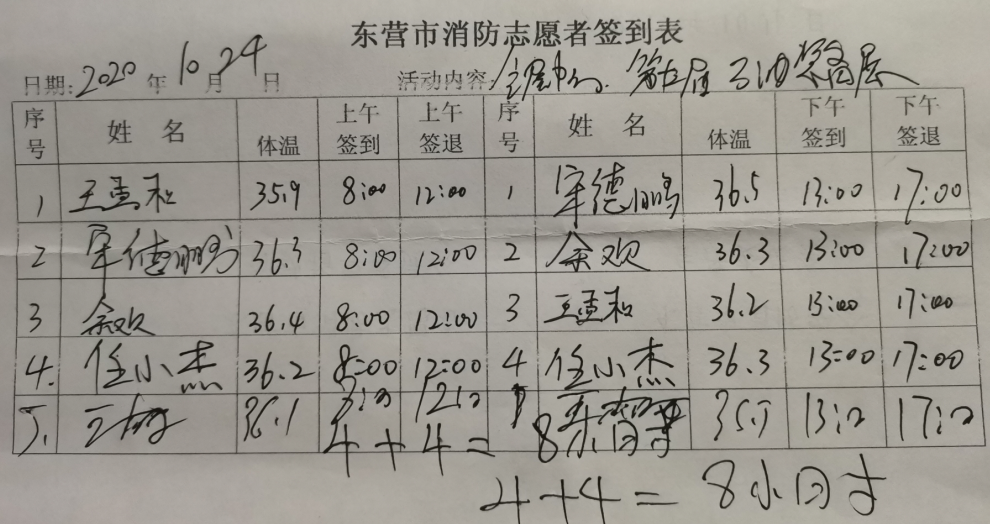 东营市消防志愿者签到表
日期:2020年10月24日 活动内容:
序号 姓名 体温 上午签到 上午签退 序号 姓名 体温 下午签到 下午签退
1 王孟和 35.9 8:00 12:00 1 宋德鹏 36.5 13:00 17:00
2 宋德鹏 36.3 8:00 12:00 2 余欢 36.3 13:00 17:00
3 余欢 36.4 8:00 12:00 3 王孟和 36.2 13:00 17:00
4. 任小杰 36.2 8:00 12:00 4 任小杰 36.3 13:00 17:00
5. 36.1 12:00 13:00 17:00
4+4=8小时
4+4=8小时